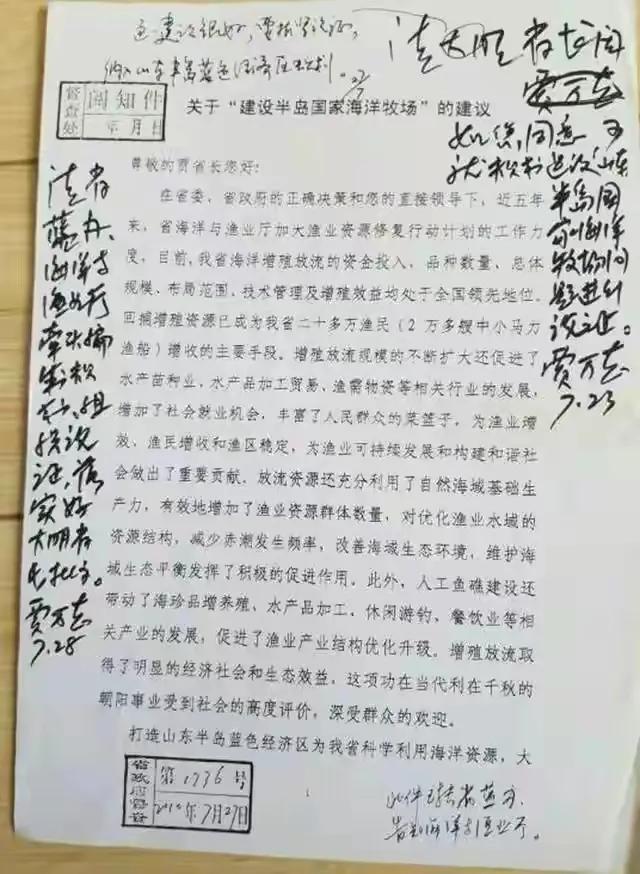 这建议很好，要抓紧论证，
纳入山东半岛蓝色经济区规划。
请大明省长阅
贾万志
如您同意可
就积极建设山东
半岛国
家级海洋
牧场问
题进行
论证。
贾万志
7.23
督查处
阅知件
年 月 日
关于“建设半岛国家海洋牧场”的建议
尊敬的贾省长您好：
在省委、省政府的正确决策和您的直接领导下，近五年
来，省海洋与渔业厅加大渔业资源修复行动计划的工作力
度，目前，我省海洋增殖放流的资金投入、品种数量、总体
规模、布局范围、技术管理及增殖效益均处于全国领先地位。
回捕增殖资源已成为我省二十多万渔民（2 万多艘中小马力
渔船）增收的主要手段。增殖放流规模的不断扩大还促进了
水产苗种业、水产品加工贸易、渔需物资等相关行业的发展，
增加了社会就业机会，丰富了人民群众的菜篮子，为渔业增
效、渔民增收和渔区稳定，为渔业可持续发展和构建和谐社
会做出了重要贡献。放流资源还充分利用了自然海域基础生
产力，有效地增加了渔业资源群体数量，对优化渔业水域的
资源结构，减少赤潮发生频率，改善海域生态环境，维护海
域生态平衡发挥了积极的促进作用。此外，人工鱼礁建设还
带动了海珍品增养殖、水产品加工、休闲游钓、餐饮业等相
关产业的发展，促进了渔业产业结构优化升级。增殖放流取
得了明显的经济社会和生态效益，这项功在当代利在千秋的
朝阳事业受到社会的高度评价，深受群众的欢迎。
打造山东半岛蓝色经济区为我省科学利用海洋资源，大
请省
蓝办、
海洋与
渔业厅
牵头编
组
织论
证，落
实好
大明省
长批示。
贾万志
7.28
省政府督查
第1776号
2010年7月27日
1
此件转省蓝办
告知海洋与渔业厅。